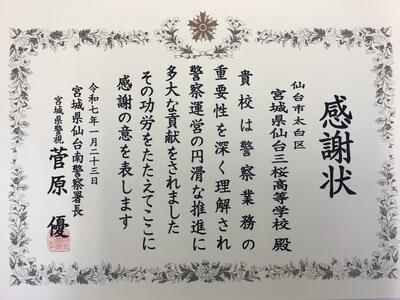 感謝状
仙台市太白区
宮城県仙台三桜高等学校 殿
貴校は警察業務の
重要性を深く理解され
警察運営の円滑な推進に
多大な貢献をされました
その功労をたたえてここに
感謝の意を表します
令和七年一月二十三日
宮城県仙台南警察署長
宮城県警視 菅原 優